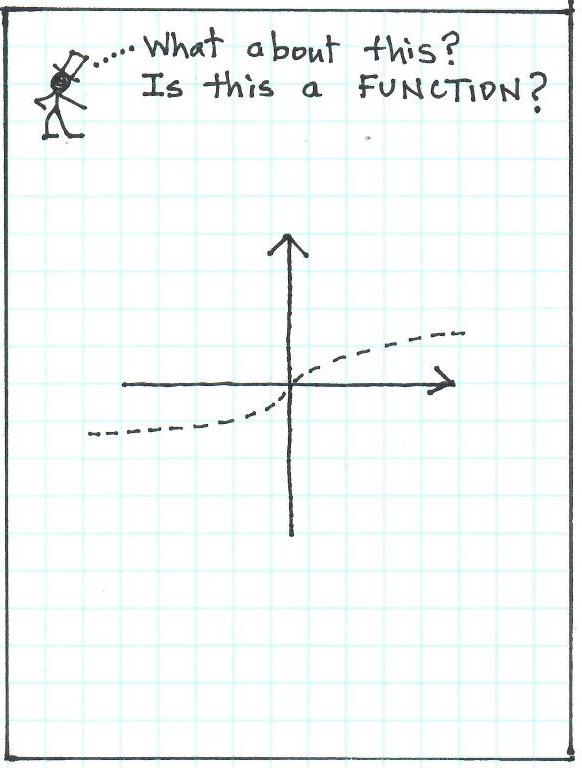 What about this?
Is this a FUNCTION?